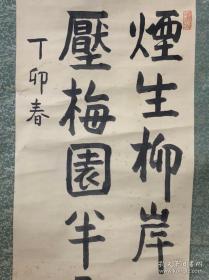 煙生柳岸
壓梅園半
丁卯春